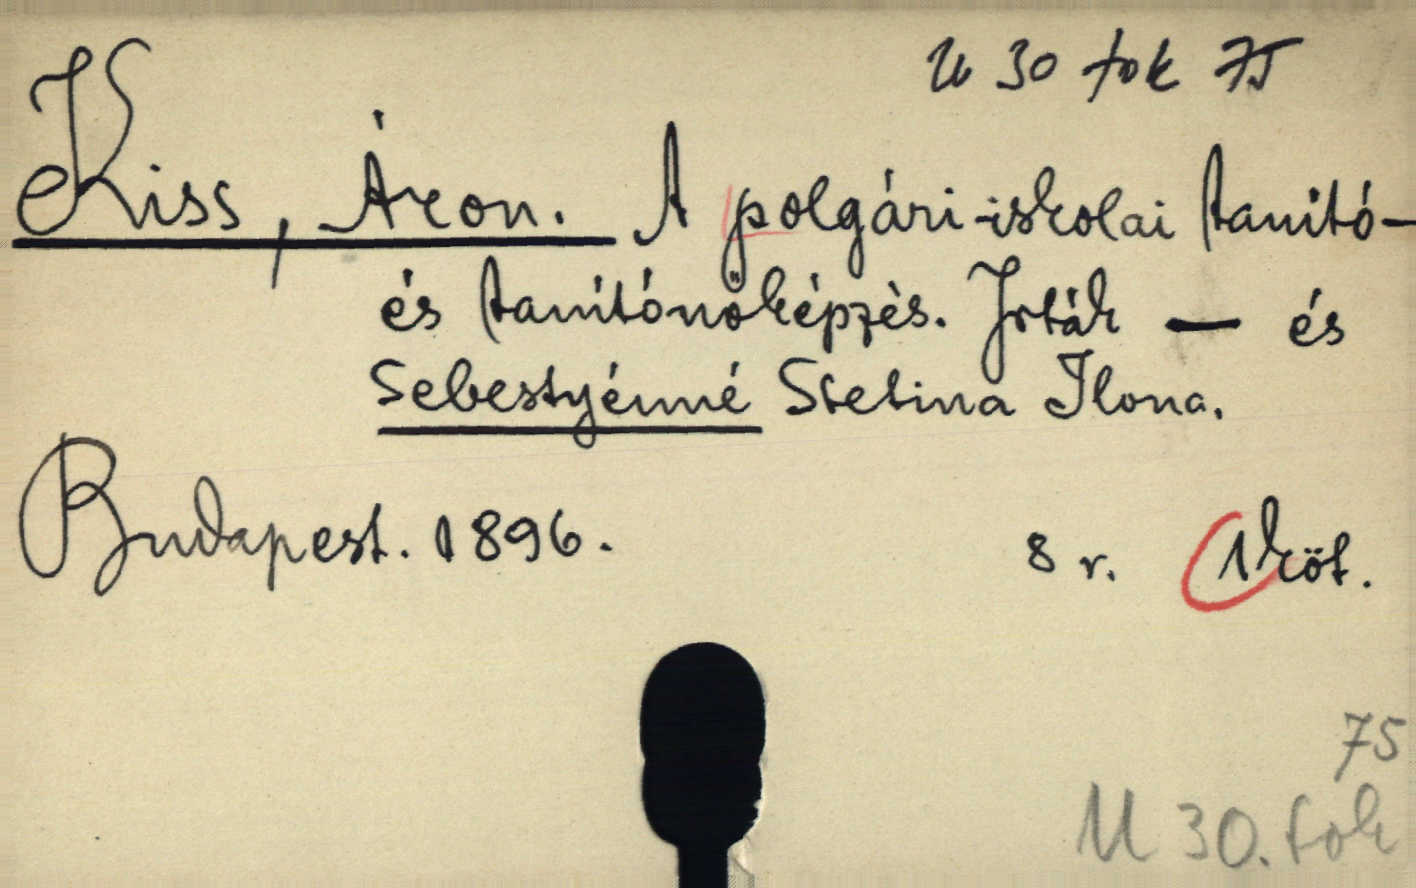 U 30 tok 75
Kiss, Áron. A polgári-iskolai tanító-
és tanítónőképzés. Irták — és
Sebestyénné Stetina Ilona.
Budapest. 1896. 8 r. 1 köt.
75
U 30. tok